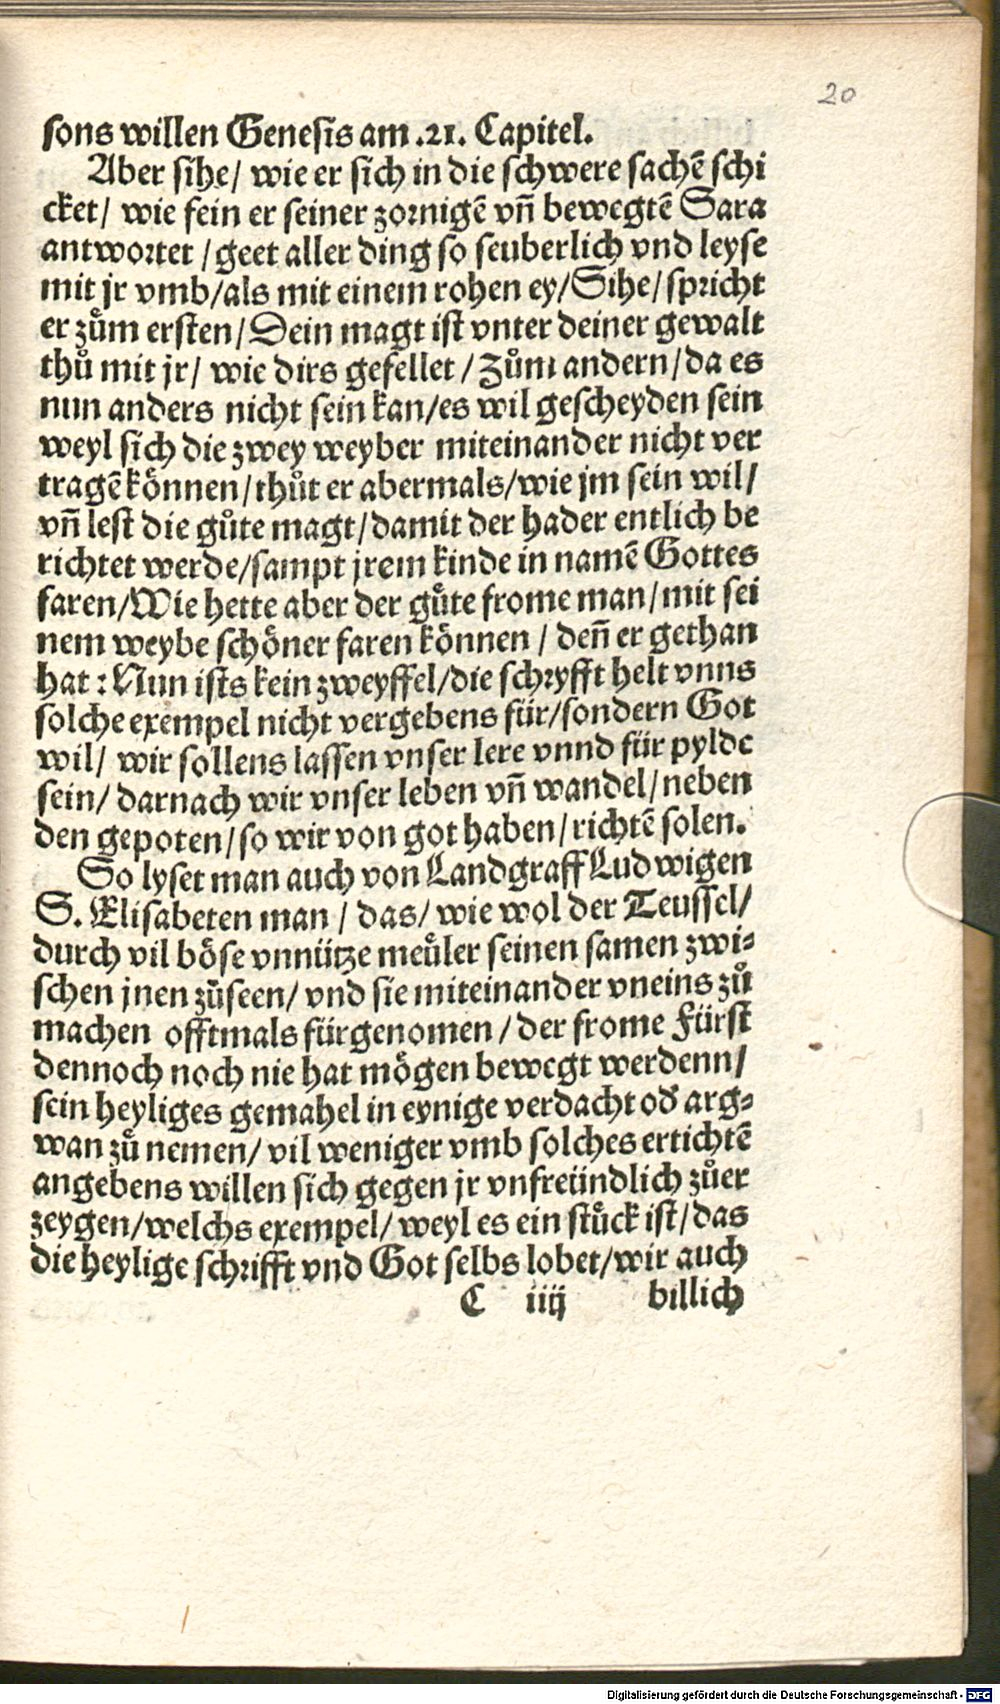 20
sons willen Genesis am .21. Capitel.
Aber sihe/ wie er sich in die schwere sachē schi
cket/ wie fein er seiner zornigē vñ bewegtē Sara
antwortet /geet aller ding so seuberlich vnd leyse
mit jr vmb/als mit einem rohen ey/Sihe/spricht
er zům ersten/Dein magt ist vnter deiner gewalt
thů mit jr/ wie dirs gefellet /Zům andern/da es
nun anders nicht sein kan/es wil gescheyden sein
weyl sich die zwey weyber miteinander nicht ver
tragē können/thůt er abermals/wie jm sein wil/
vñ lest die gůte magt/damit der hader entlich be
richtet werde/sampt jrem kinde in namē Gottes
faren/Wie hette aber der gůte frome man/mit sei
nem weybe schöner faren können / deñ er gethan
hat : Nun ists kein zweyffel/die schryfft helt vnns
solche exempel nicht vergebens für/sondern Got
wil/ wir sollens lassen vnser lere vnnd für pylde
sein/ darnach wir vnser leben vñ wandel/neben
den gepoten/so wir von got haben/richtē solen.
So lyset man auch von Landgraff Ludwigen
S. Elisabeten man / das/ wie wol der Teuffel/
durch vil böse vnnütze meüler seinen samen zwi⸗
schen jnen zůseen/ vnd sie miteinander vneins zů
machen offtmals fürgenomen /der frome Fürst
dennoch noch nie hat mögen bewegt werdenn/
sein heyliges gemahel in eynige verdacht oď arg⸗
wan zů nemen/ vil weniger vmb solches ertichtē
angebens willen sich gegen jr vnfreündlich zůer
zeygen/welchs exempel/ weyl es ein stück ist/das
die heylige schrifft vnd Got selbs lobet/wir auch
C iiij billich
Digitalisierung gefördert durch die Deutsche Forschungsgemeinschaft - DFG